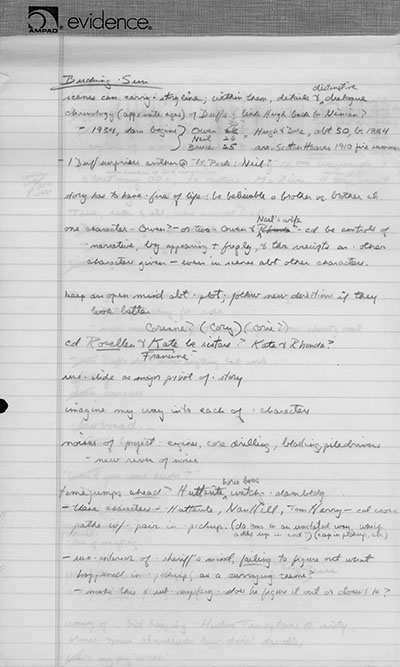 AMPAD evidence.
Bucking · Sun
distinctive
scenes can carry · storyline; within them, details & dialogue
chronology (approximate ages) of Duffs; link Hugh back to Ninian?
- 1934, dam begins) Owen 28
Neil
Bruce 25
Hugh & abt 50, to 1884
are Scotch Heaven 1910 fire summer
- 1 Duff surprises another @ Ft. Peck: Neil?
story has to have · fire of life: be believable a brother vs. brother
Neil's wife
one character - Owen? - or two - Owen & Rhonda - cd be controls of
narrative, by appearing + frqly, & the insights on · other
characters given - even in scenes abt other characters.
keep an open mind abt · plot; follow new directions if they
look better
Corinne? (Cory) (Corie?)
cd Rosellen & Kate be sisters? Kate & Rhonda?
Francine
use · slide as major pivot of · story
imagine my way into each of · characters
noises of project: engines, core drilling, blasting, piledrivers
- new river of noise
time jumps ahead? Huttante, watching · dam bldg
- these characters - Huttante, Van Hill, Tom Harry - cd cross
paths w/ · pair in pickup. (do some in an unstated way, which
adds up in end?)
- use interior of · sheriff's mind, failing to figure out what
happened in · pickup, as a carrying theme?
- make this a sub · mystery: does he figure it out or doesn't he?